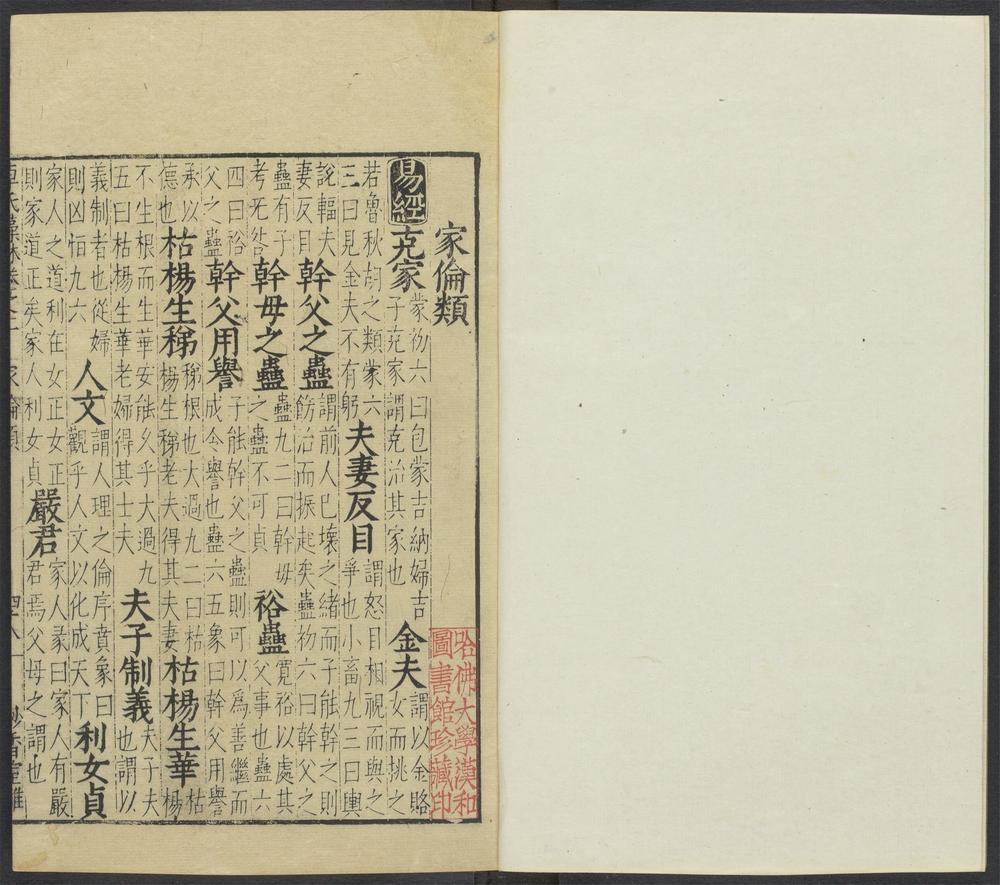 家倫類
哈佛大學漢和
圖書館珍藏印
易經克家蒙初六曰包蒙吉納婦吉子克家謂克治其家也金夫謂以金賂女而挑之
若魯秋胡之類蒙六三曰見金夫不有躬夫妻反目謂怒目相視而與之爭也小畜九三曰輿
說輻夫妻反目幹父之蠱謂前人已壞之緒而子能幹之則飭治而振起矣蠱初六曰幹父之
蠱有子考无咎幹母之蠱蠱九二曰幹母之蠱不可貞裕蠱寬裕以處其父事也蠱六
四曰裕父之蠱幹父用譽子能幹父之蠱則可以爲善繼而成令譽也蠱六五象曰幹父用譽
承以德也枯楊生稊稊根也大過九二曰枯楊生稊老夫得其夫妻枯楊生華枯楊
不生根而生華安能久乎大過九五曰枯楊生華老婦得其士夫夫子制義夫子夫也謂以
義制者也從婦則凶恒九六人文謂人理之倫序賁象曰觀乎人文以化成天下利女貞
家人之道利在女正女正則家道正矣家人利女貞嚴君家人彖曰家人有嚴君焉父母之謂也